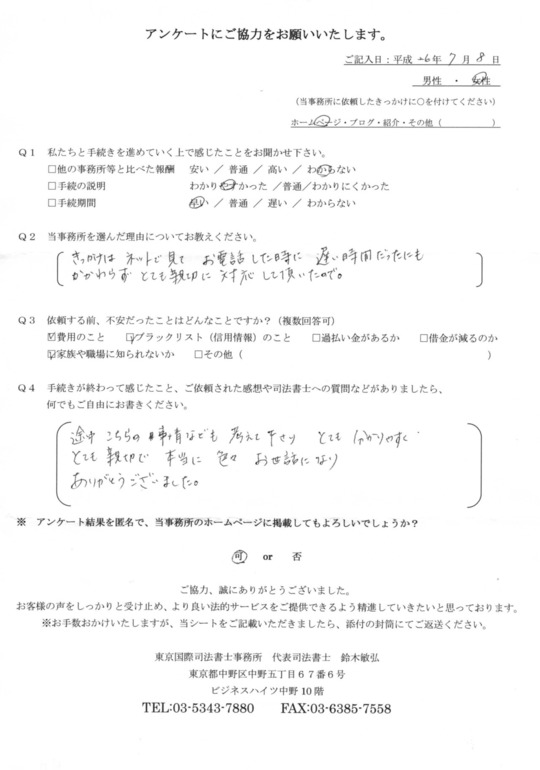 アンケートにご協力をお願いいたします。
ご記入日：平成 26年 7月 8日
男性 ・ 女性
（当事務所に依頼したきっかけに○を付けてください）
ホームページ・ブログ・紹介・その他（　　　　　）
Q1 私たちと手続きを進めていく上で感じたことをお聞かせ下さい。
□他の事務所等と比べた報酬　安い ／ 普通 ／ 高い ／ わからない
□手続の説明　わかりやすかった ／普通／わかりにくかった
□手続期間　早い ／ 普通 ／ 遅い ／ わからない
Q2 当事務所を選んだ理由についてお教えください。
きっかけは ネットで見て お電話した時に 遅い時間だったにも
かかわらず とても親切に 対応して頂いたので。
Q3 依頼する前、不安だったことはどんなことですか？（複数回答可）
☑費用のこと　☑ブラックリスト（信用情報）のこと　□過払い金があるか　□借金が減るのか
☑家族や職場に知られないか　□その他（　　　　　）
Q4 手続きが終わって感じたこと、ご依頼された感想や司法書士への質問などがありましたら、
何でもご自由にお書きください。
途中 こちらの 事情なども 考えて下さり とても 分かりやすく
とても 親切で 本当に 色々 お世話になり
ありがとうございました。
※ アンケート結果を匿名で、当事務所のホームページに掲載してもよろしいでしょうか？
可 or 否
ご協力、誠にありがとうございました。
お客様の声をしっかりと受け止め、より良い法的サービスをご提供できるよう精進していきたいと思っております。
※お手数おかけいたしますが、当シートをご記載いただきましたら、添付の封筒にてご返送ください。
東京国際司法書士事務所　代表司法書士　鈴木敏弘
東京都中野区中野五丁目６７番６号
ビジネスハイツ中野 10 階
TEL:03-5343-7880　FAX:03-6385-7558